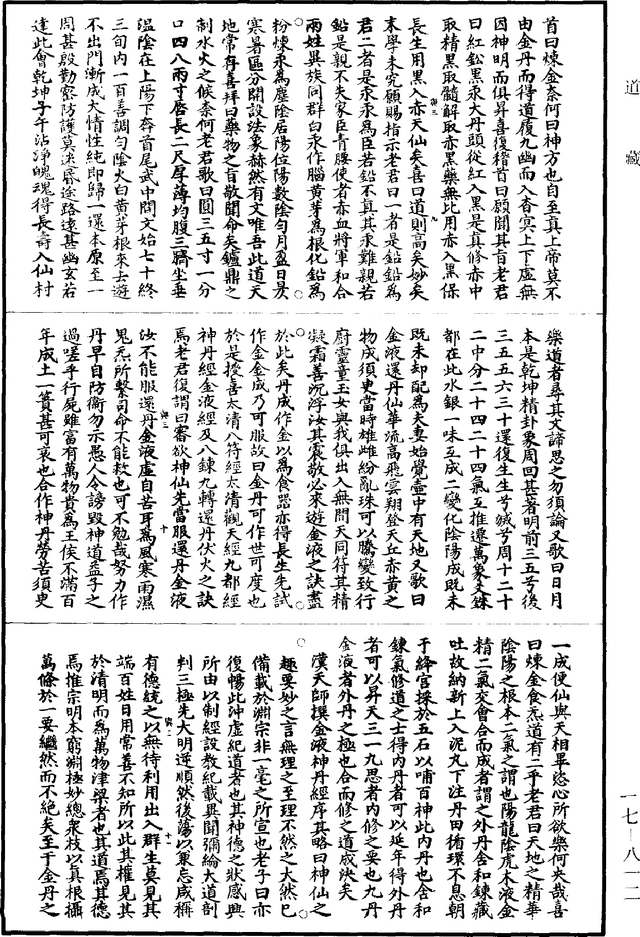 道藏
首曰煉金柰何曰神方也自至真上帝莫不
由金丹而得道履九幽而入杳冥上下虛無
因神明而俱昇喜復稽首曰願聞其旨老君
曰紅鈆黑汞大丹頭從紅入黑是真修赤中
取精黑取髓解取赤黑藥無比用赤入黑保
長生用黑入赤天仙矣喜曰道則高矣妙矣
末學未究願賜指示老君曰一者是鉛鉛爲
君二者是汞汞爲臣若鉛不真其汞難親若
鉛是親不失家臣青腰使者赤血將軍和合
兩姓異族同群白汞作腦黃芽爲根化鉛爲
粉煉汞爲塵陰居陽位陽數陰勻月盈日昃
寒暑區分開設法象赫然有文唯吾此道天
地常存喜拜曰藥物之旨敬聞命矣鑪鼎之
制水火之候柰何老君歌曰圓三五寸一分
口四八兩寸脣長二尺厚薄均腹三臍坐垂
温陰在上陽下奔首尾武中間文始七十終
三旬內一百善調勻陰火白黃芽根來去遊
不出門漸成大情性純即歸一還本原至一
周甚殷勤密防護莫迷昏途路遠甚幽玄若
達此會乾坤子午沾淨魄魂得長壽入仙村
樂道者尋其文諦思之勿須論又歌曰日月
本是乾坤精卦象周回甚著明前三五兮後
三五五六三十還復生生兮緘兮周十二十
二中分二十四二十四氣互推遷萬象交銖
都在此水銀一味互成二變化陰陽成既未
既未却配爲夫妻始覺壺中有天地又歌曰
金液還丹仙華流高飛雲翔登天丘赤黃之
物成須臾當時雄雌紛亂珠可以騰變致行
廚靈童玉女與我俱出入無間天同符其精
凝霜善沉浮汝其震敬必來遊金液之訣盡
於此矣丹成作金以爲食器亦得長生先試
作金金成乃可服故曰金丹可作世可度也
於是授喜太清八符經太清觀天經九都經
神丹經金液經及八鍊九轉還丹伏火之訣
焉老君復謂曰審欲神仙先當服還丹金液
汝不能服還丹金液虛自苦耳爲風寒雨濕
鬼炁所繫司命不能救也可不勉哉努力作
丹早自防衞勿示愚人令謗毀神道益子之
過嗟乎行屍雖富有萬物貴爲王侯不滿百
年成土一簣甚可哀也合作神丹勞苦須臾
一成便仙與天相畢恣心所欲樂何央哉喜
曰煉金食炁道有二乎老君曰天地之精華
陰陽之根本二氣之謂也陽龍陰虎木液金
精二氣交會合而成者謂之外丹含和鍊藏
吐故納新上入泥丸下注丹田循環不息朝
于絳宮採於五石以哺百神此內丹也含和
鍊氣修道之士得內丹者可以延年得外丹
者可以昇天三一九思者內修之要也九丹
金液者外丹之極也合而修之道成決矣
漢天師撰金液神丹經序其略曰神仙之
趣要妙之言無理之至理不然之大然已
備載於淵宗非一毫之所宣也老子曰亦
復暢此沖虛紀道者也其神德之狀感興
所由以制經設教紀載異聞彌綸大道剖
判三極先大明逆順然後蕩以兼忘咸稱
有德統之以無待利用出入群生莫見其
端百姓日用常善不知所以此其權見其
於清明而爲萬物津梁者也其道焉其德
焉推宗明本窮淵極妙總衆枝以真根攝
萬條於一要繼然而不絕矣至于金丹之
一七—八一二